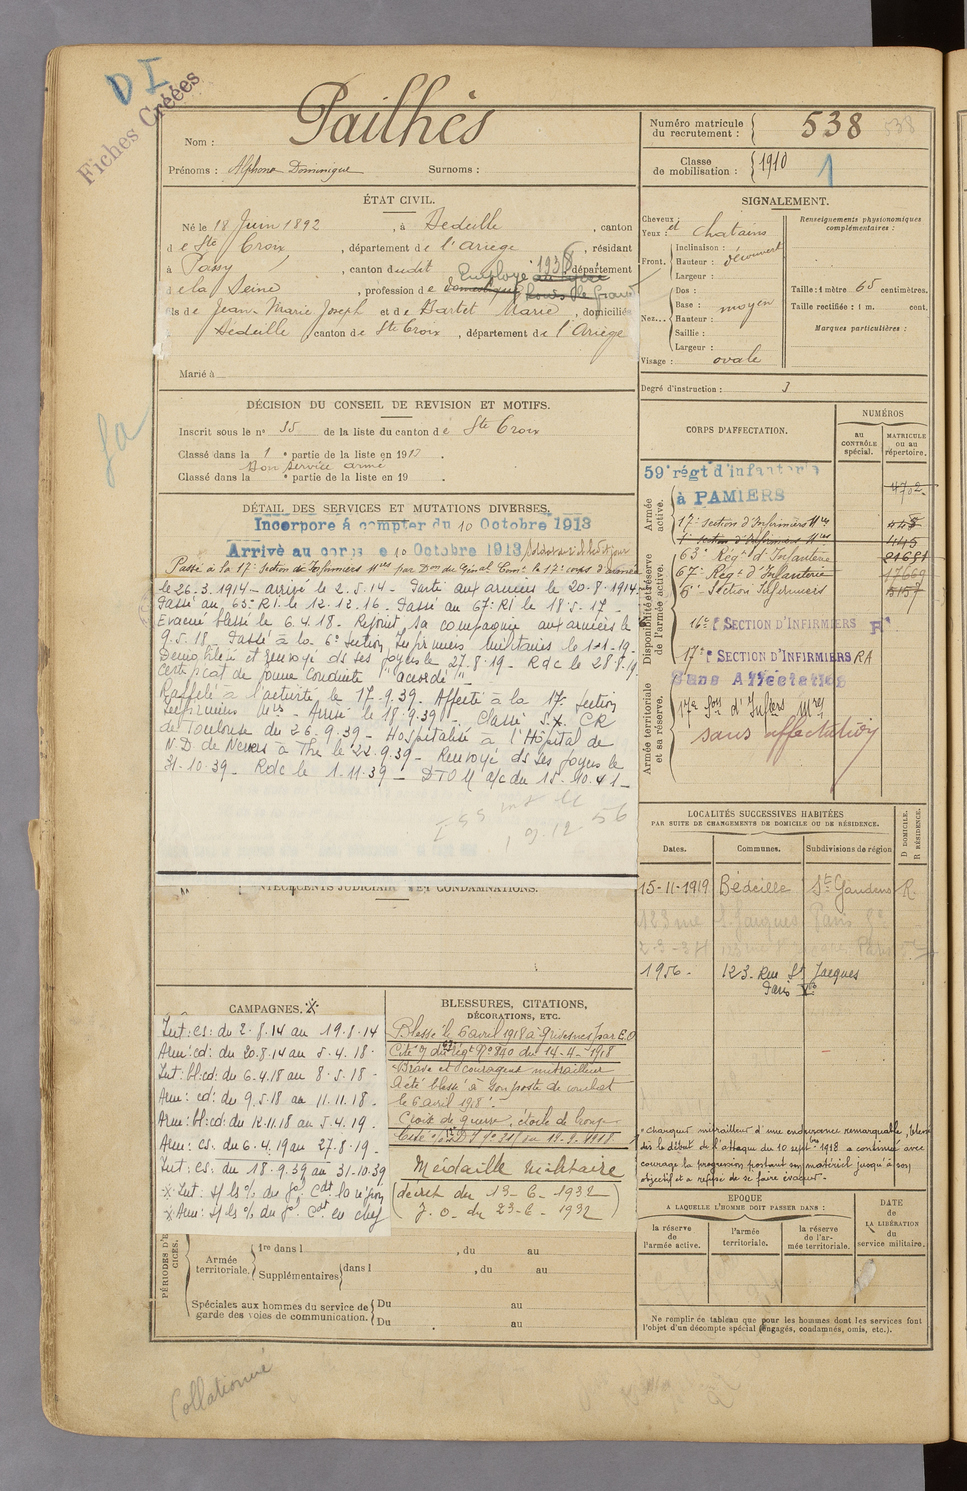 DI
Fiches Créées
Nom : Pailhès
Prénoms : Alphonse Dominique Surnoms :
Numéro matricule du recrutement : 538 538
Classe de mobilisation : 1910 1
ÉTAT CIVIL.
Né le 18 Juin 1892, à Bedeille, canton
de Ste Croix, département de l'Ariège, résidant
à Passy, canton dudit 1938 département
Employé au lycée
de la Seine, profession de domestique Louis le Grand
fils de Jean-Marie Joseph et de Dartet Marie, domiciliés
Bedeille canton de Ste Croix, département de l'Ariège
Marié à
SIGNALEMENT.
Cheveux et
Yeux : chatains
Front, Inclinaison :
Hauteur : découvert
Largeur :
Nez... Dos :
Base : moyen
Hauteur :
Saillie :
Largeur :
Visage : ovale
Renseignements physionomiques complémentaires :
Taille : 1 mètre 65 centimètres.
Taille rectifiée : 1 m. cent.
Marques particulières :
Degré d'instruction : 3
DÉCISION DU CONSEIL DE REVISION ET MOTIFS.
Inscrit sous le n° 35 de la liste du canton de Ste Croix
Classé dans la 1e partie de la liste en 1912.
Bon service armé
Classé dans la e partie de la liste en 19 .
DÉTAIL DES SERVICES ET MUTATIONS DIVERSES.
Incorporé à compter du 10 Octobre 1913
Arrivé au corps le 10 Octobre 1913 Soldat de 2e cl. le dit jour
Passé à la 17e Section de Infirmiers Mres par Don du Génal Comt le 17e corps d'armée
le 26.3.1914 - arrivé le 2.5.14 - Parti aux armées le 20-8-1914
Passé au 63e RI le 12.12.16 - Passé au 67e RI le 18-5-17 -
Evacué blessé le 6.4.18 - Rejoint sa compagnie aux armées le
9.5.18. Passé à la 6e Section Infirmiers Militaires le 1-11-19 -
Démobilisé et renvoyé ds ses foyers le 27.8.19 - Rdc le 28.8.19
Certificat de bonne Conduite "accordé" -
Rappelé à l'activité le 17.9.39. Affecté à la 17e Section
Infirmiers Mres - Arrivé le 18.9.39 - Classé S.X. CR
de Toulouse du 26.9.39 - Hospitalisé à l'Hôpital de
N.D de Nevers à Tlse le 22.9.39 - Renvoyé ds ses foyers le
31-10-39 - Rdc le 1.11.39 - DTOM a/c du 15-10-41 -
CORPS D'AFFECTATION.
NUMÉROS
au CONTRÔLE spécial.
MATRICULE ou au répertoire.
Armée active.
59e régt d'infanterie à PAMIERS 4702
17e Section d'Infirmiers Mres 448
1e Section d'Infirmiers Mres 445
Disponibilité et réserve de l'armée active.
63e Régt d'Infanterie 21681
67e Regt d'Infanterie 17669
6e Section Infirmiers 5157
16e SECTION D'INFIRMIERS
17e SECTION D'INFIRMIERS RA
Sans Affectation
Armée territoriale et sa réserve.
17e Son d'Infiers Mres
sans affectation
LOCALITÉS SUCCESSIVES HABITÉES
PAR SUITE DE CHANGEMENTS DE DOMICILE OU DE RÉSIDENCE.
Dates. Communes. Subdivisions de région D DOMICILE. R RÉSIDENCE.
15-11-1919 Bédeille St Gaudens R.
123 rue St Jacques Paris
1956 - 123. Rue St Jacques
Paris Ve
ANTÉCÉDENTS JUDICIAIRES ET CONDAMNATIONS.
CAMPAGNES.
Int: cs: du 2.8.14 au 19.8.14
Arm: cd: du 20.8.14 au 5.4.18 -
Int: bl: cd: du 6.4.18 au 8.5.18 -
Arm: cd: du 9.5.18 au 11.11.18 -
Arm: bl: cd: du 12.11.18 au 5.4.19 -
Arm: cs. du 6.4.19 au 27.8.19 -
Int: cs. du 18.9.39 au 31.10.39
BLESSURES, CITATIONS,
DÉCORATIONS, ETC.
Blessé le 6 avril 1918 à Grivesnes par E.O
Cité à du 67e régt No 840 du 14-4-1918
Brave et courageux mitrailleur
a été blessé à son poste de combat
le 6 avril 1918 -
Croix de guerre, étoile de bronze
Médaille militaire
(décret du 13-6-1932
J.O. du 23-6-1932)
"Chargeur mitrailleur d'une endurance remarquable, blessé
dès le début de l'attaque du 10 septbre 1918 a continué avec
courage la progression portant son matériel jusqu'à son
objectif et a refusé de se faire évacuer -
EPOQUE
A LAQUELLE L'HOMME DOIT PASSER DANS :
la réserve de l'armée active.
l'armée territoriale.
la réserve de l'armée territoriale.
DATE de LA LIBÉRATION du service militaire.
Armée territoriale. 1re dans l , du au
Supplémentaires dans l , du au
Spéciales aux hommes du service de garde des voies de communication. Du au
Du au
Ne remplir ce tableau que pour les hommes dont les services font
l'objet d'un décompte spécial (engagés, condamnés, omis, etc.).
Collationné